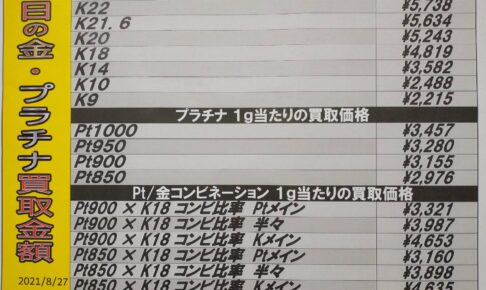 日の金・プラチナ買取金額
2021/8/27
K22 ¥5,738
K21.6 ¥5,634
K20 ¥5,243
K18 ¥4,819
K14 ¥3,582
K10 ¥2,488
K9 ¥2,215
プラチナ 1g当たりの買取価格
Pt1000 ¥3,457
Pt950 ¥3,280
Pt900 ¥3,155
Pt850 ¥2,976
Pt/金コンビネーション 1g当たりの買取価格
Pt900 × K18 コンビ比率 Ptメイン ¥3,321
Pt900 × K18 コンビ比率 半々 ¥3,987
Pt900 × K18 コンビ比率 Kメイン ¥4,653
Pt850 × K18 コンビ比率 Ptメイン ¥3,160
Pt850 × K18 コンビ比率 半々 ¥3,898
Pt850 × K18 コンビ比率 Kメイン ¥4,635